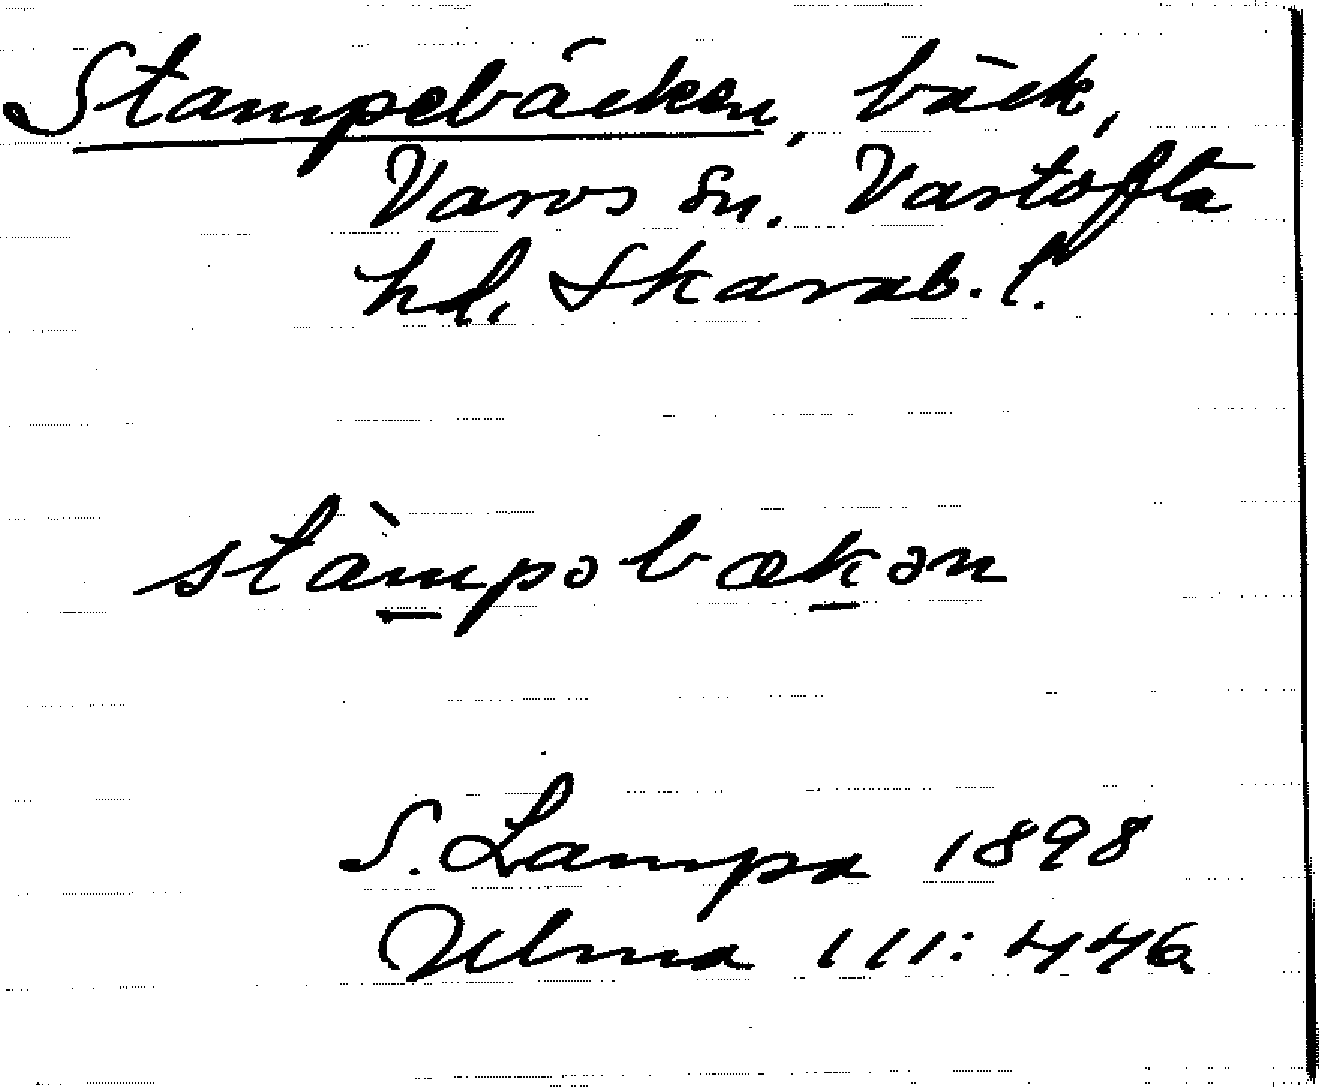 Stampebäcken, bäck,
Varvs sn. Vartofta
hd, Skarab. l.
stàmpəbækən
S. Lampa 1898
Ulma 111: 446